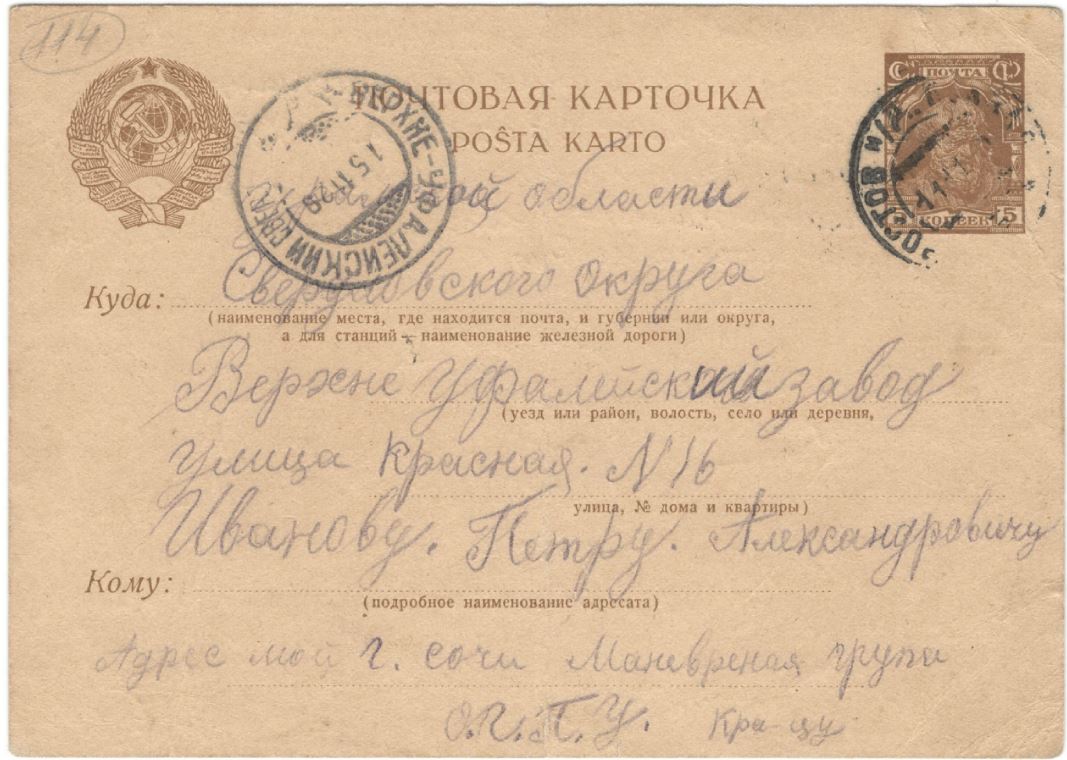 114
ПОЧТОВАЯ КАРТОЧКА
POŜTA KARTO
ПОЧТА
КОПЕЕК 5
ВЕРХНЕ-УФАЛЕЙСКИЙ
области
Куда: Свердловского Округа
(наименование места, где находится почта, и губернии или округа,
а для станций – наименование железной дороги)
Верхне Уфалейский завод
(уезд или район, волость, село или деревня,
улица Красная. N 16
улица, № дома и квартиры)
Иванову. Петру. Александровичу
Кому:
(подробное наименование адресата)
Адрес мой г. сочи Маневреная група
О.Г.П.У.